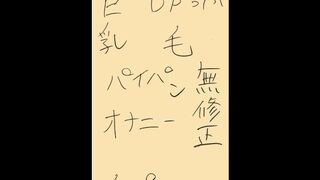 乳 毛
パイパン
オナニー
無修正